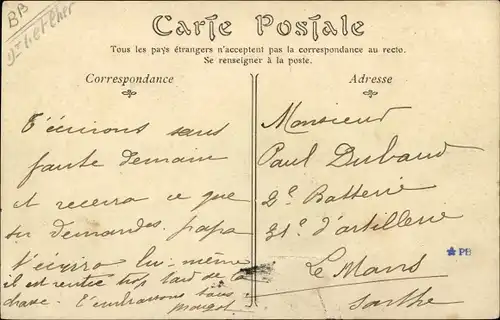 BB
Dt L et Cher
Carte Postale
Tous les pays étrangers n'acceptent pas la correspondance au recto.
Se renseigner à la poste.
Correspondance
T'écrirons sans
faute demain
et recevra ce que
tu demandes. papa
t'écrira lui-même
il est rentré trop tard de la
chasse. T'embrassons tous
Margot
Adresse
Monsieur
Paul Dubaud
2e Batterie
31e d'artillerie
Le Mans
Sarthe
PB